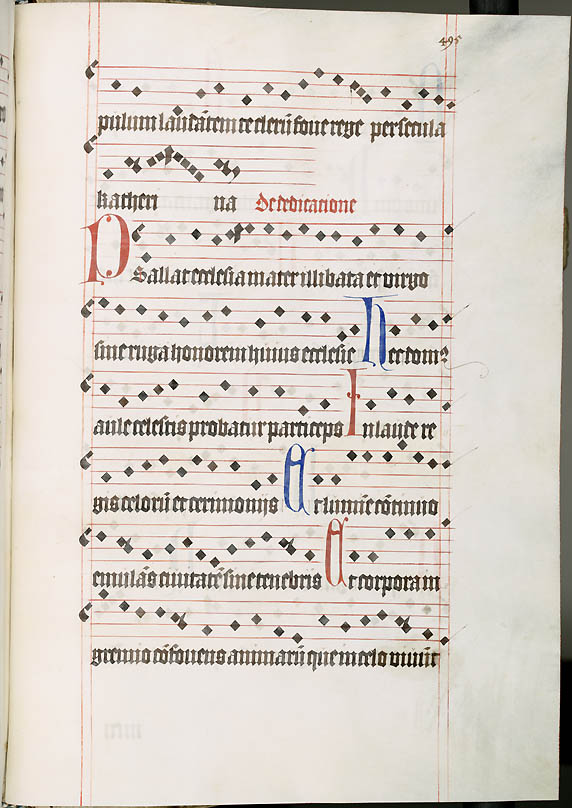 495
pulum laudātem te clerū foue rege per secula
katheri na De dedicatione
PSallat ecclesia mater illibata et virgo
sine ruga honorem huius ecclesie Hec domꝰ
aule celestis probatur particeps In laude re
gis celorū et cerimonijs Et lumīe cōtinuo
emulās ciuitatē sine tenebris Et corpora in
gremio cōfouens animarū que in celo viuūt